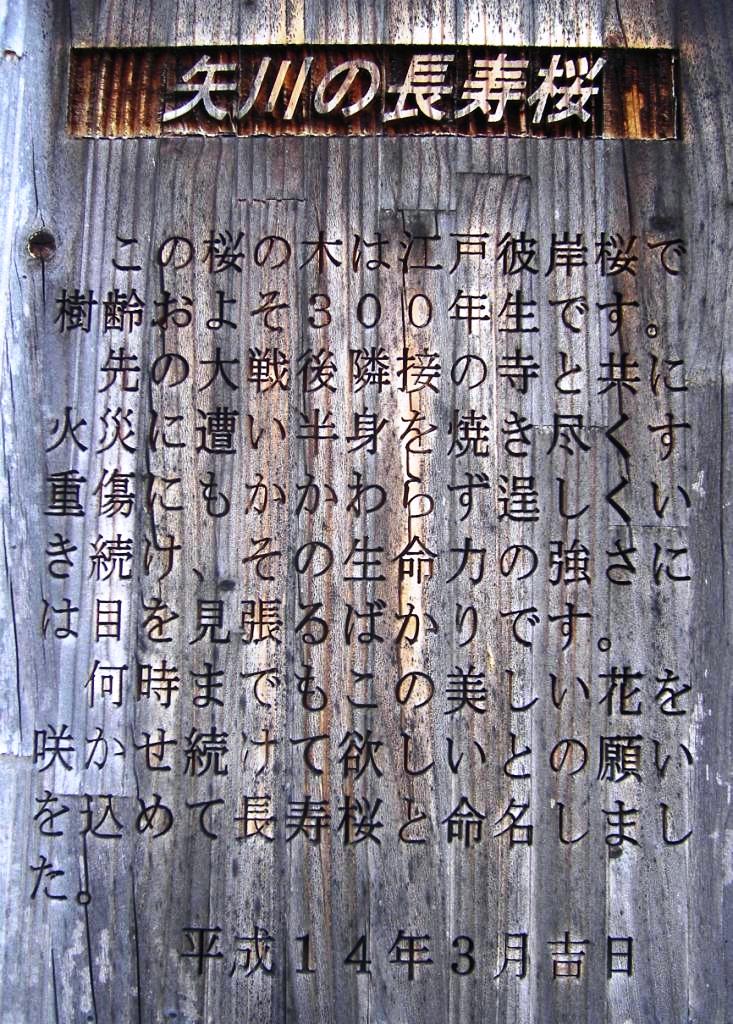 矢川の長寿桜
この桜の木は江戸彼岸桜で
樹齢およそ300年生です。
先の大戦後隣接の寺と共に
火災に遭い半身を焼き尽くす
重傷にもかかわらず逞しくい
き続け、その生命力の強さに
は目を見張るばかりです。
何時までもこの美しい花を
咲かせ続けて欲しいとの願い
を込めて長寿桜と命名しまし
た。
平成14年3月吉日